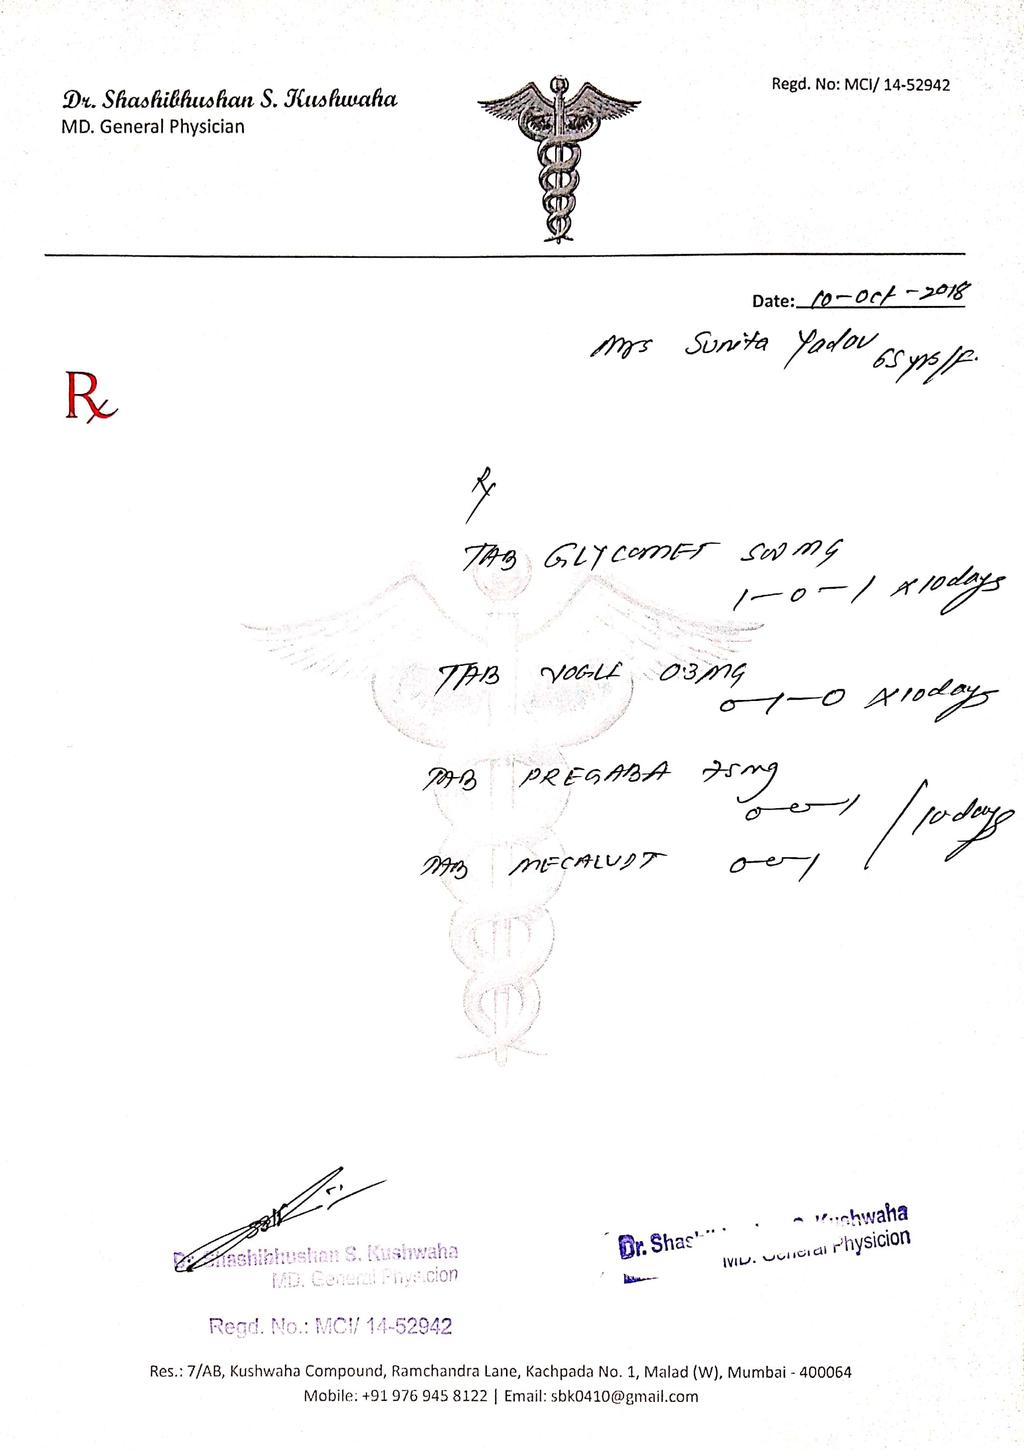 Dr. Shashibhushan S. Kushwaha
MD. General Physician
Regd. No: MCI/ 14-52942
Date: 10-Oct-2018
Mrs Sunita Yadav 65 yrs/F.
Rx
Rx
TAB GLYCOMET 500 MG
1-0-1 x 10 days
TAB VOGLI 0.3 MG
0-1-0 x 10 days
TAB PREGABA 75 mg
0-0-1
10 days
TAB 0-0-1
Dr. Shashibhushan S. Kushwaha
MD. General Physicion
Regd. No.: MCI/ 14-52942
Dr. Shas Kushwaha
MD. General Physicion
Res.: 7/AB, Kushwaha Compound, Ramchandra Lane, Kachpada No. 1, Malad (W), Mumbai - 400064
Mobile: +91 976 945 8122 | Email: sbk0410@gmail.com